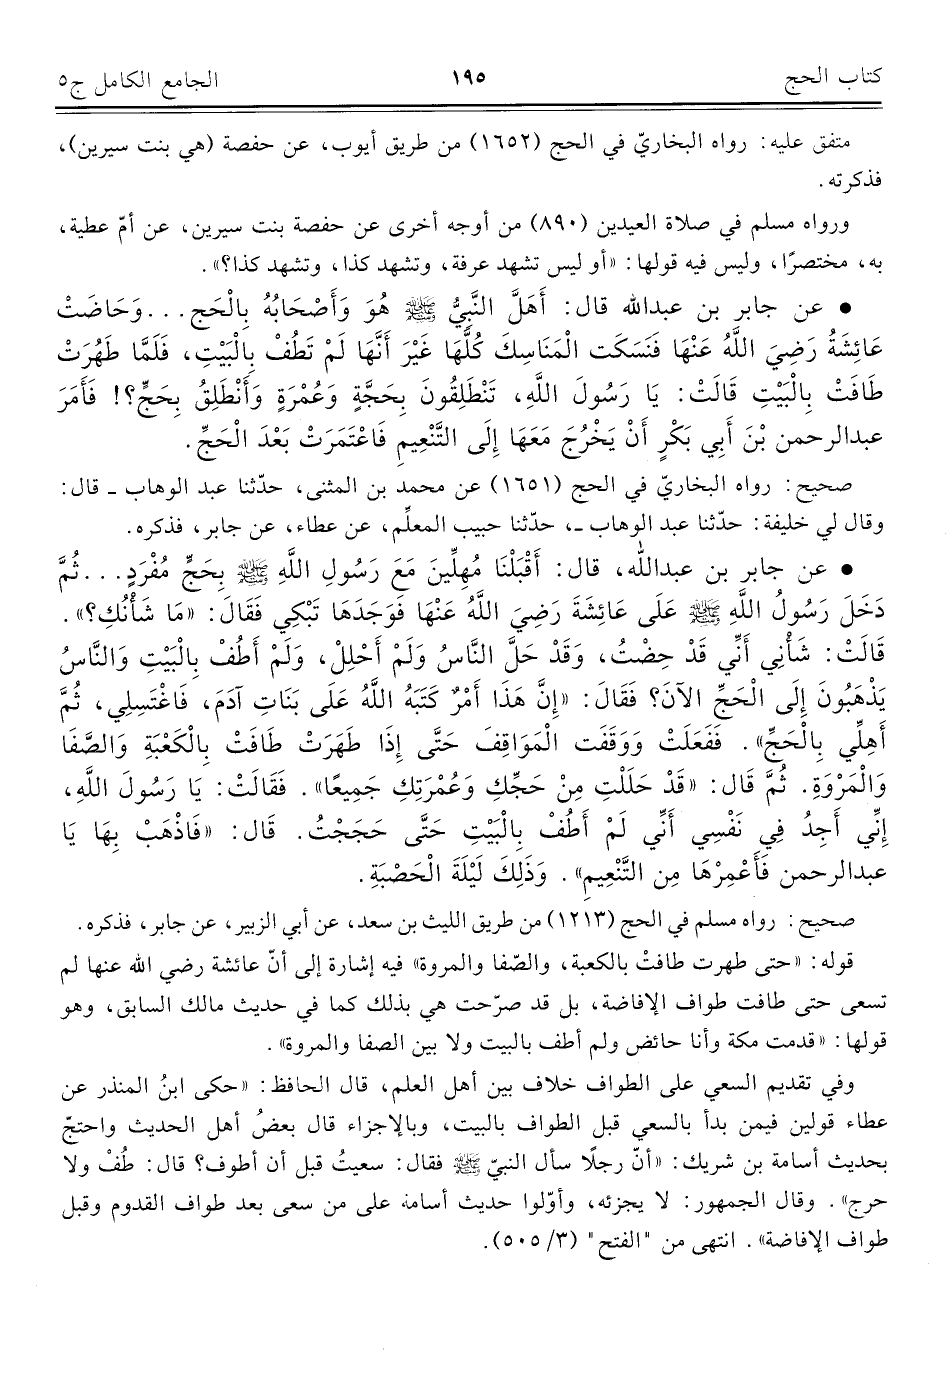 كتاب الحج ١٩٥ الجامع الكامل ج٥
متفق عليه: رواه البخاريّ في الحج (١٦٥٢) من طريق أيوب، عن حفصة (هي بنت سيرين)،
فذكرته.
ورواه مسلم في صلاة العيدين (٨٩٠) من أوجه أخرى عن حفصة بنت سيرين، عن أمّ عطية،
به، مختصرًا، وليس فيه قولها: «أو ليس تشهد عرفة، وتشهد كذا، وتشهد كذا؟».
● عن جابر بن عبدالله قال: أَهَلَّ النَّبِيُّ ﷺ هُوَ وَأَصْحَابُهُ بِالْحَج ...وَحَاضَتْ
عَائِشَةُ رَضِيَ اللَّهُ عَنْهَا فَنَسَكَت الْمَنَاسِكَ كُلَّهَا غَيْرَ أَنَّهَا لَمْ تَطُفْ بِالْبَيْتِ، فَلَمَّا طَهُرَتْ
طَافَتْ بِالْبَيْتِ قَالَتْ: يَا رَسُولَ اللَّهِ، تَنْطَلِقُونَ بِحَجَّةٍ وَعُمْرَةٍ وَأَنْطَلِقُ بِحَجٍّ؟! فَأَمَرَ
عبدالرحمن بْنَ أَبِي بَكْرٍ أَنْ يَخْرُجَ مَعَهَا إِلَى التَّنْعِيمِ فَاعْتَمَرَتْ بَعْدَ الْحَجِّ.
صحيح: رواه البخاريّ في الحج (١٦٥١) عن محمد بن المثنى، حدّثنا عبد الوهاب ـ قال:
وقال لي خليفة: حدّثنا عبد الوهاب ـ، حدّثنا حبيب المعلِّم، عن عطاء، عن جابر، فذكره.
● عن جابر بن عبداللّٰه، قال: أَقْبَلْنَا مُهِلِّينَ مَعَ رَسُولِ اللَّهِ ﷺ بِحَجٍّ مُفْرَدٍ...ثُمَّ
دَخَلَ رَسُولُ اللَّهِ ﷺ عَلَى عَائِشَةَ رَضِيَ اللَّهُ عَنْهَا فَوَجَدَهَا تَبْكِي فَقَالَ: «مَا شَأْنُكِ؟».
قَالَتْ: شَأْنِي أَنِّي قَدْ حِضْتُ، وَقَدْ حَلَّ النَّاسُ وَلَمْ أَحْلِلْ، وَلَمْ أَطُفْ بِالْبَيْتِ وَالنَّاسُ
يَذْهَبُونَ إِلَى الْحَجِّ الآنَ؟ فَقَالَ: «إِنَّ هَذَا أَمْرٌ كَتَبَهُ اللَّهُ عَلَى بَنَاتِ آدَمَ، فَاغْتَسِلِي، ثُمَّ
أَهِلِّي بِالْحَجِّ». فَفَعَلَتْ وَوَقَفَت الْمَوَاقِفَ حَتَّى إِذَا طَهَرَتْ طَافَتْ بِالْكَعْبَةِ وَالصَّفَا
وَالْمَرْوَةِ. ثُمَّ قَالَ: «قَدْ حَلَلْتِ مِنْ حَجِّكِ وَعُمْرَتِكِ جَمِيعًا». فَقَالَتْ: يَا رَسُولَ اللَّهِ،
إِنِّي أَجِدُ فِي نَفْسِي أَنِّي لَمْ أَطُفْ بِالْبَيْتِ حَتَّى حَجَجْتُ. قَالَ: «فَاذْهَبْ بِهَا يَا
عبدالرحمن فَأَعْمِرْهَا مِن التَّنْعِيمِ». وَذَلِكَ لَيْلَةَ الْحَصْبَةِ.
صحيح: رواه مسلم في الحج (١٢١٣) من طريق الليث بن سعد، عن أبي الزبير، عن جابر، فذكره.
قوله: «حتى طهرت طافتْ بالكعبة، والصّفا والمروة» فيه إشارة إلى أنّ عائشة رضي الله عنها لم
تسعى حتى طافت طواف الإفاضة، بل قد صرّحت هي بذلك كما في حديث مالك السابق، وهو
قولها: «قدمت مكة وأنا حائض ولم أطف بالبيت ولا بين الصفا والمروة».
وفي تقديم السعي على الطواف خلاف بين أهل العلم، قال الحافظ: «حكى ابنُ المنذر عن
عطاء قولين فيمن بدأ بالسعي قبل الطواف بالبيت، وبالإجزاء قال بعضُ أهل الحديث واحتجّ
بحديث أسامة بن شريك: «أنّ رجلًا سأل النبيّ ﷺ فقال: سعيتُ قبل أن أطوف؟ قال: طُفْ ولا
حرج». وقال الجمهور: لا يجزئه، وأوّلوا حديث أسامة على من سعى بعد طواف القدوم وقبل
طواف الإفاضة». انتهى من "الفتح" (٣/ ٥٠٥).